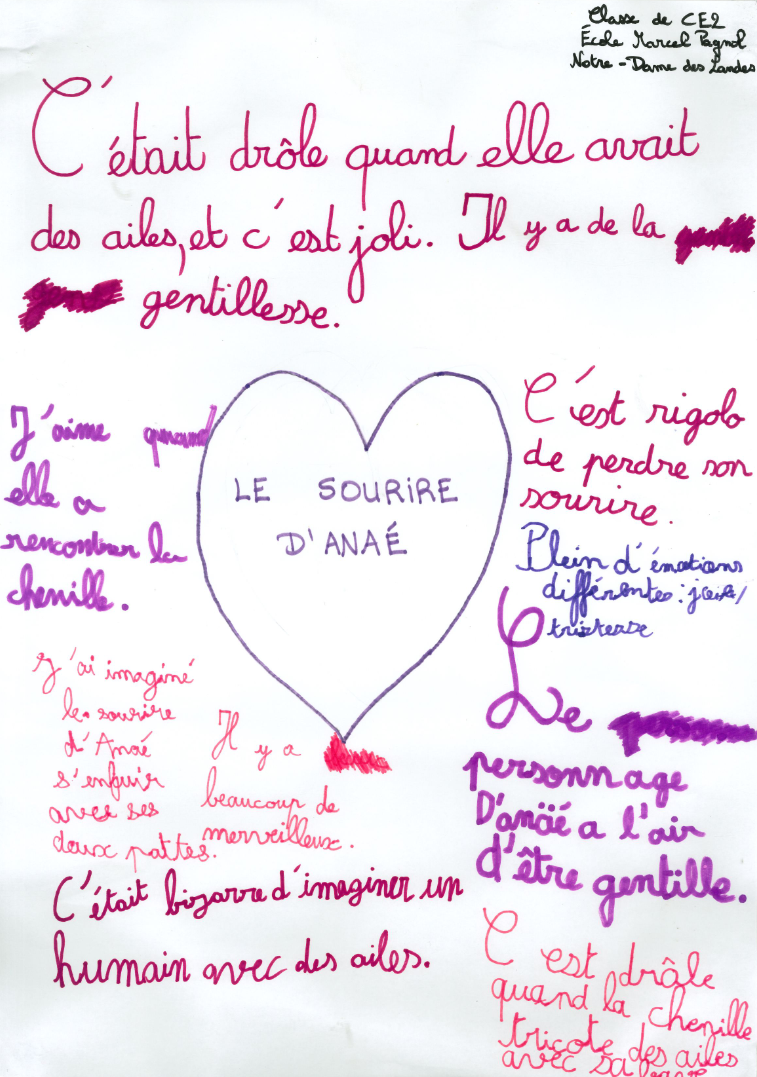 Classe de CE2
École Marcel Pagnol
Notre-Dame des Landes
C'était drôle quand elle avait
des ailes, et c'est joli. Il y a de la
gentillesse.
LE SOURIRE
D'ANAÉ
J'aime quand
elle a
rencontrer la
chenille.
C'est rigolo
de perdre son
sourire.
Plein d'émotions
différentes : joie/
tristesse
J'ai imaginé
le sourire
d'Anaé
s'enfuir
avec ses
deux pattes.
Il y a
beaucoup de
merveilleux.
Le
personnage
D'anäé a l'air
d'être gentille.
C'était bizarre d'imaginer un
humain avec des ailes.
C est drôle
quand la chenille
tricote des ailes
avec sa